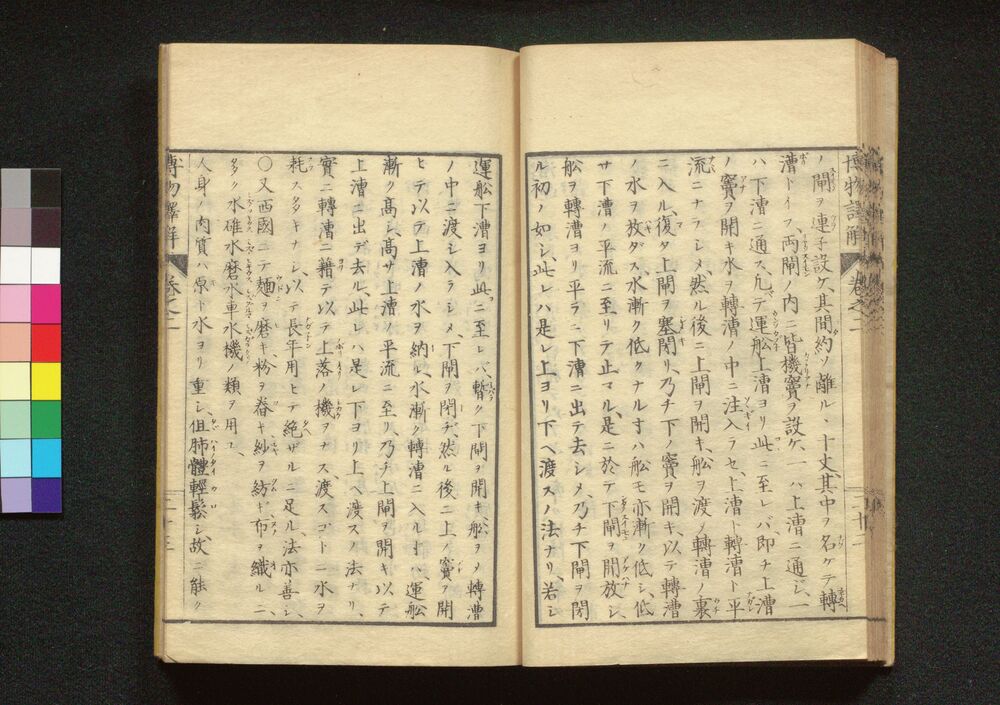 博物譯解 巻之二
ノ閘ヲ連子設ケ、其間約ソ離ル丶十丈、其中ヲ名ケテ轉
漕トイフ、両閘ノ内ニ皆機竇ヲ設ケ、一ハ上漕ニ通ジ、一
ハ下漕ニ通ス、凢テ運舩上漕ヨリ此ニ至レバ、即チ上漕
ノ竇ヲ開キ水ヲ轉漕ノ中ニ注入ラセ、上漕ト轉漕ト平
流ニナラシメ、然ル後ニ上閘ヲ開キ、舩ヲ渡ノ轉漕ノ裏
ニ入ル、復タ上閘ヲ塞閉リ、乃チ下ノ竇ヲ開キ、以テ轉漕
ノ水ヲ放ダス、水漸ク低クナル寸ハ舩モ亦漸ク低シ、低
サ下漕ノ平流ニ至リ止マル、是ニ於テ下閘ヲ開放シ、
舩ヲ轉漕ヨリ平ラニ下漕ニ出テ去シメ、乃チ下閘ヲ閉
ル初ノ如シ、此レハ是レ上ヨリ下ヘ渡スノ法ナリ、若シ
運舩下漕ヨリ此ニ至レバ、暫ク下閘ヲ開キ、舩ヲメ轉漕
ノ中ニ渡シ入ラシメ下閘ヲ閉ヂ、然ル後ニ上ノ竇ヲ開
ヒテ以テ上漕ノ水ヲ納ル、水漸ク轉漕ニ入ル寸ハ、運舩
漸ク高シ、高サ上漕ノ平流ニ至リ乃チ上閘ヲ開キ以テ
上漕ニ出デ去ル、此レハ是レ下ヨリ上ヘ渡スノ法ナリ、
實ニ轉漕ニ藉テ以テ上落ノ機ヲナス、渡スゴトニ水ヲ
耗スクタキナシ、以テ長年用ヒテ絶ザルニ足ル、法亦善シ、
○又西國ニテ麺ヲ磨キ、粉ヲ舂キ紗ヲ紡キ布ヲ織ルニ、
多ク水碓水磨水車水機ノ類ヲ用ユ、
人身ノ肉質ハ原ト水ヨリ重シ、但肺體輕鬆シ、故ニ能ク
博物譯解 巻之二 二十三